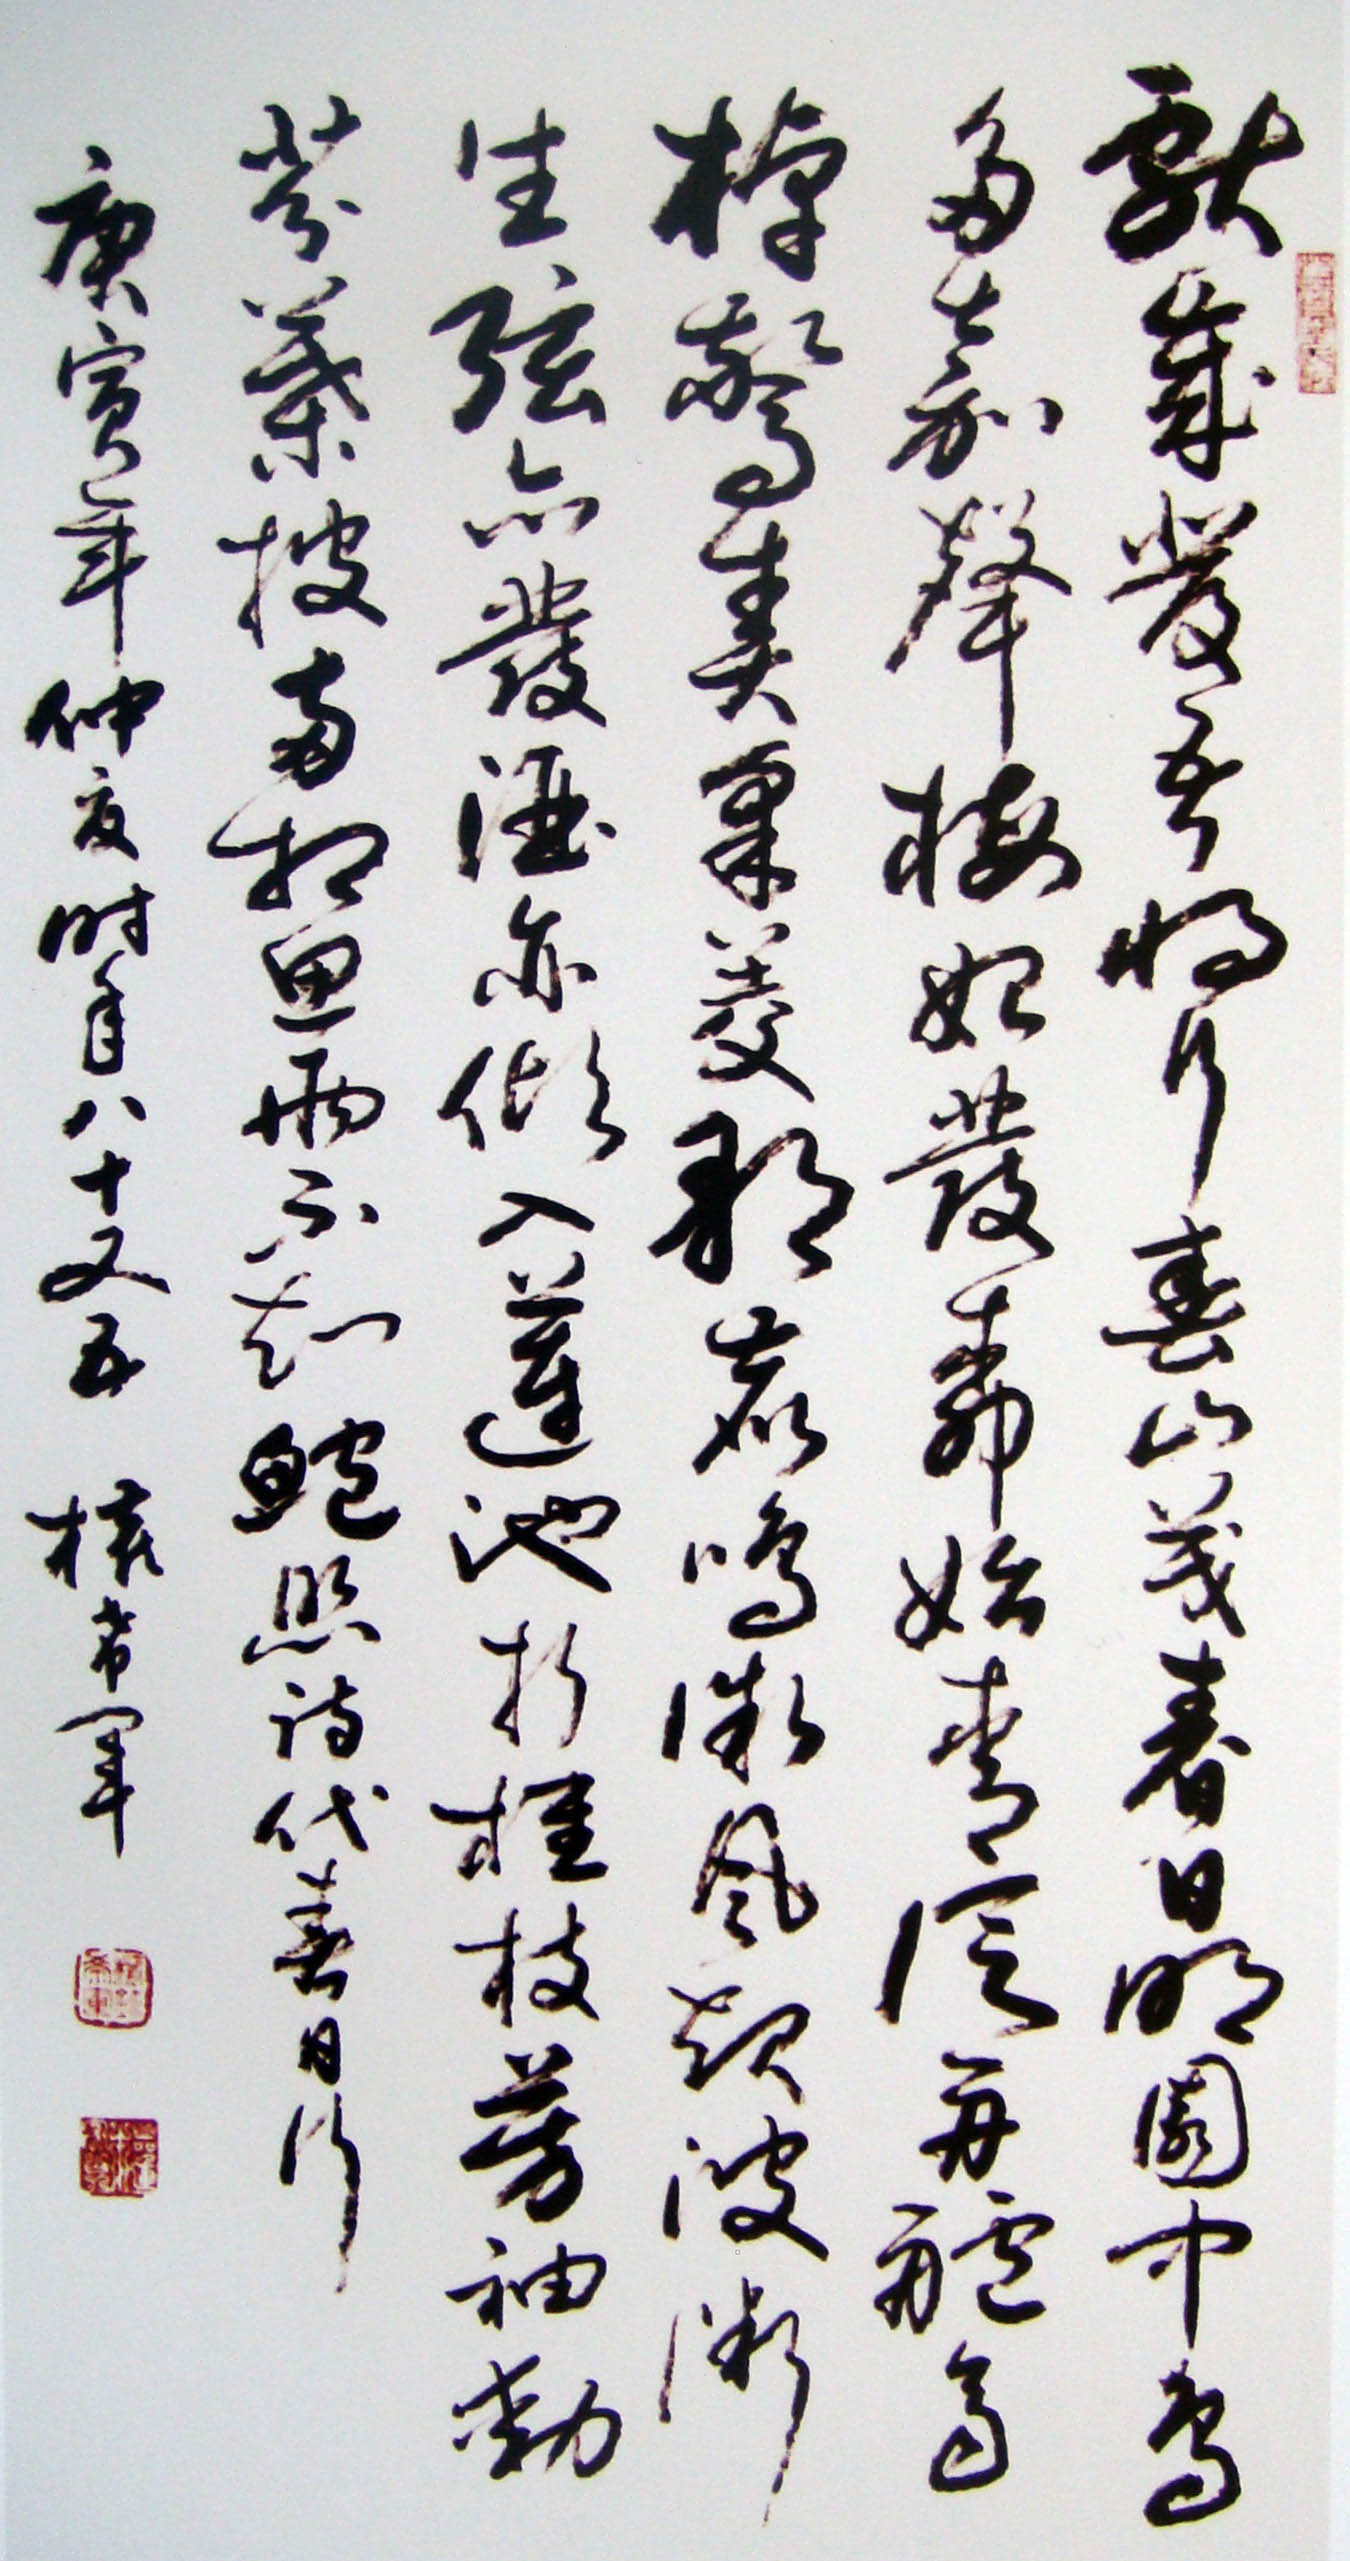 獻歲發吾將行春山茂春日明園中鳥
多嘉聲梅始發柳始青泛舟艫齊
棹驚奏采菱歌鹿鳴微風起波微
生弦亦發酒亦傾入蓮池折桂枝芳袖動
芬葉披兩相思兩不知鮑照詩代春日行
庚寅年仲夏时年八十又五 權希軍